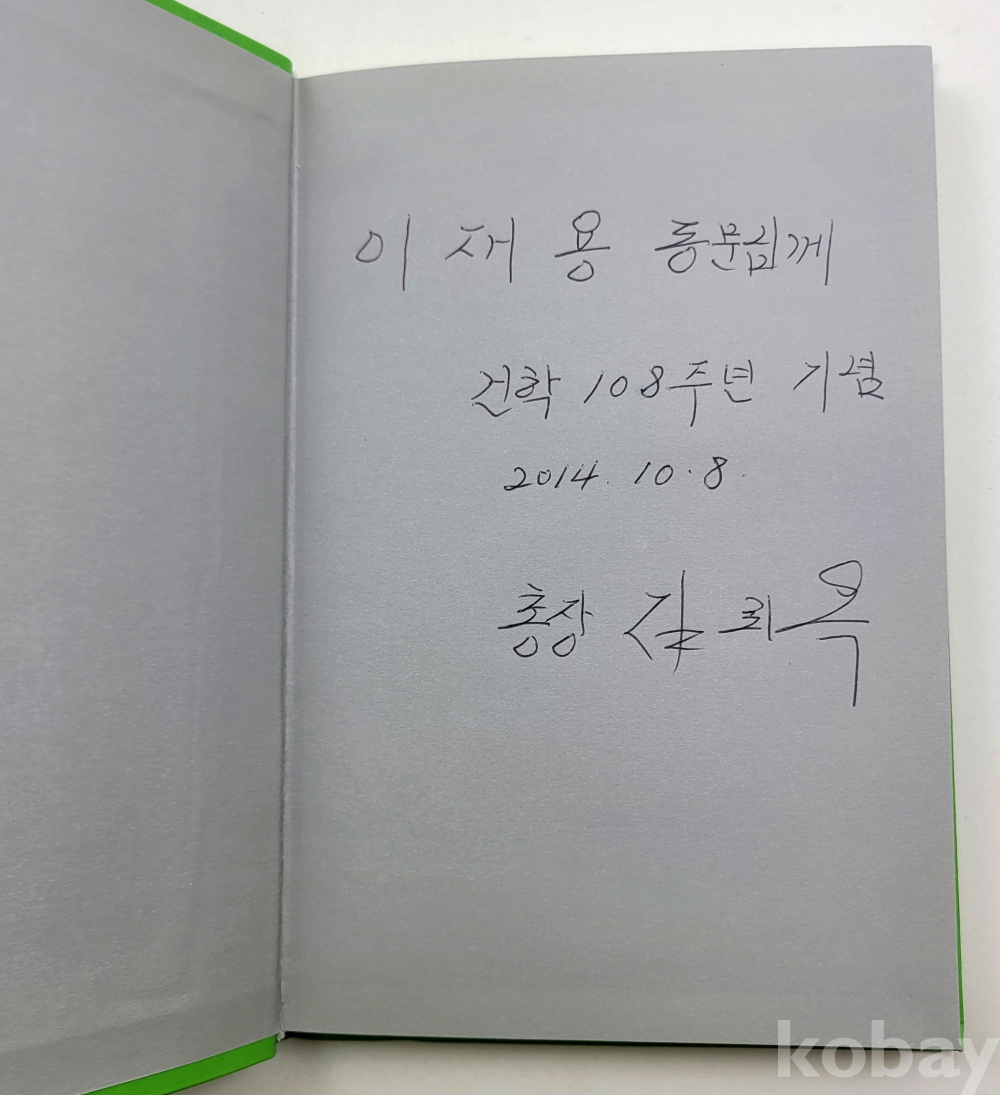 이재용 동문님께
건학 108주년 기념
2014. 10. 8.
총장 김희옥
kobay